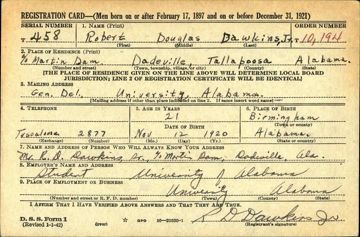 REGISTRATION CARD—(Men born on or after February 17, 1897 and on or before December 31, 1921)
SERIAL NUMBER 1. NAME (Print) ORDER NUMBER
T 458 Robert Douglas Dawkins, Jr. 10,194
(First) (Middle) (Last)
2. PLACE OF RESIDENCE (Print)
% Martin Dam, Dadeville, Tallapoosa Alabama
(Number and street) (Town, township, village, or city) (County) (State)
[THE PLACE OF RESIDENCE GIVEN ON THE LINE ABOVE WILL DETERMINE LOCAL BOARD
JURISDICTION; LINE 2 OF REGISTRATION CERTIFICATE WILL BE IDENTICAL]
3. MAILING ADDRESS
Gen. Del. University Alabama.
[Mailing address if other than place indicated on line 2. If same insert word same]
4. TELEPHONE 5. AGE IN YEARS 6. PLACE OF BIRTH
21 Birmingham
DATE OF BIRTH (Town or county)
Tuscaloosa 2877 Nov 12 1920 Alabama.
(Exchange) (Number) (Mo.) (Day) (Yr.) (State or country)
7. NAME AND ADDRESS OF PERSON WHO WILL ALWAYS KNOW YOUR ADDRESS
Mr. R. D. Dawkins, Sr., % Martin Dam, Dadeville, Ala.
8. EMPLOYER'S NAME AND ADDRESS
Student University of Alabama
9. PLACE OF EMPLOYMENT OR BUSINESS
University Alabama
(Number and street or R. F. D. number) (Town) (County) (State)
I AFFIRM THAT I HAVE VERIFIED ABOVE ANSWERS AND THAT THEY ARE TRUE.
D. S. S. Form 1
(Revised 1-1-42) (over) R D Dawkins Jr.
(Registrant's signature)